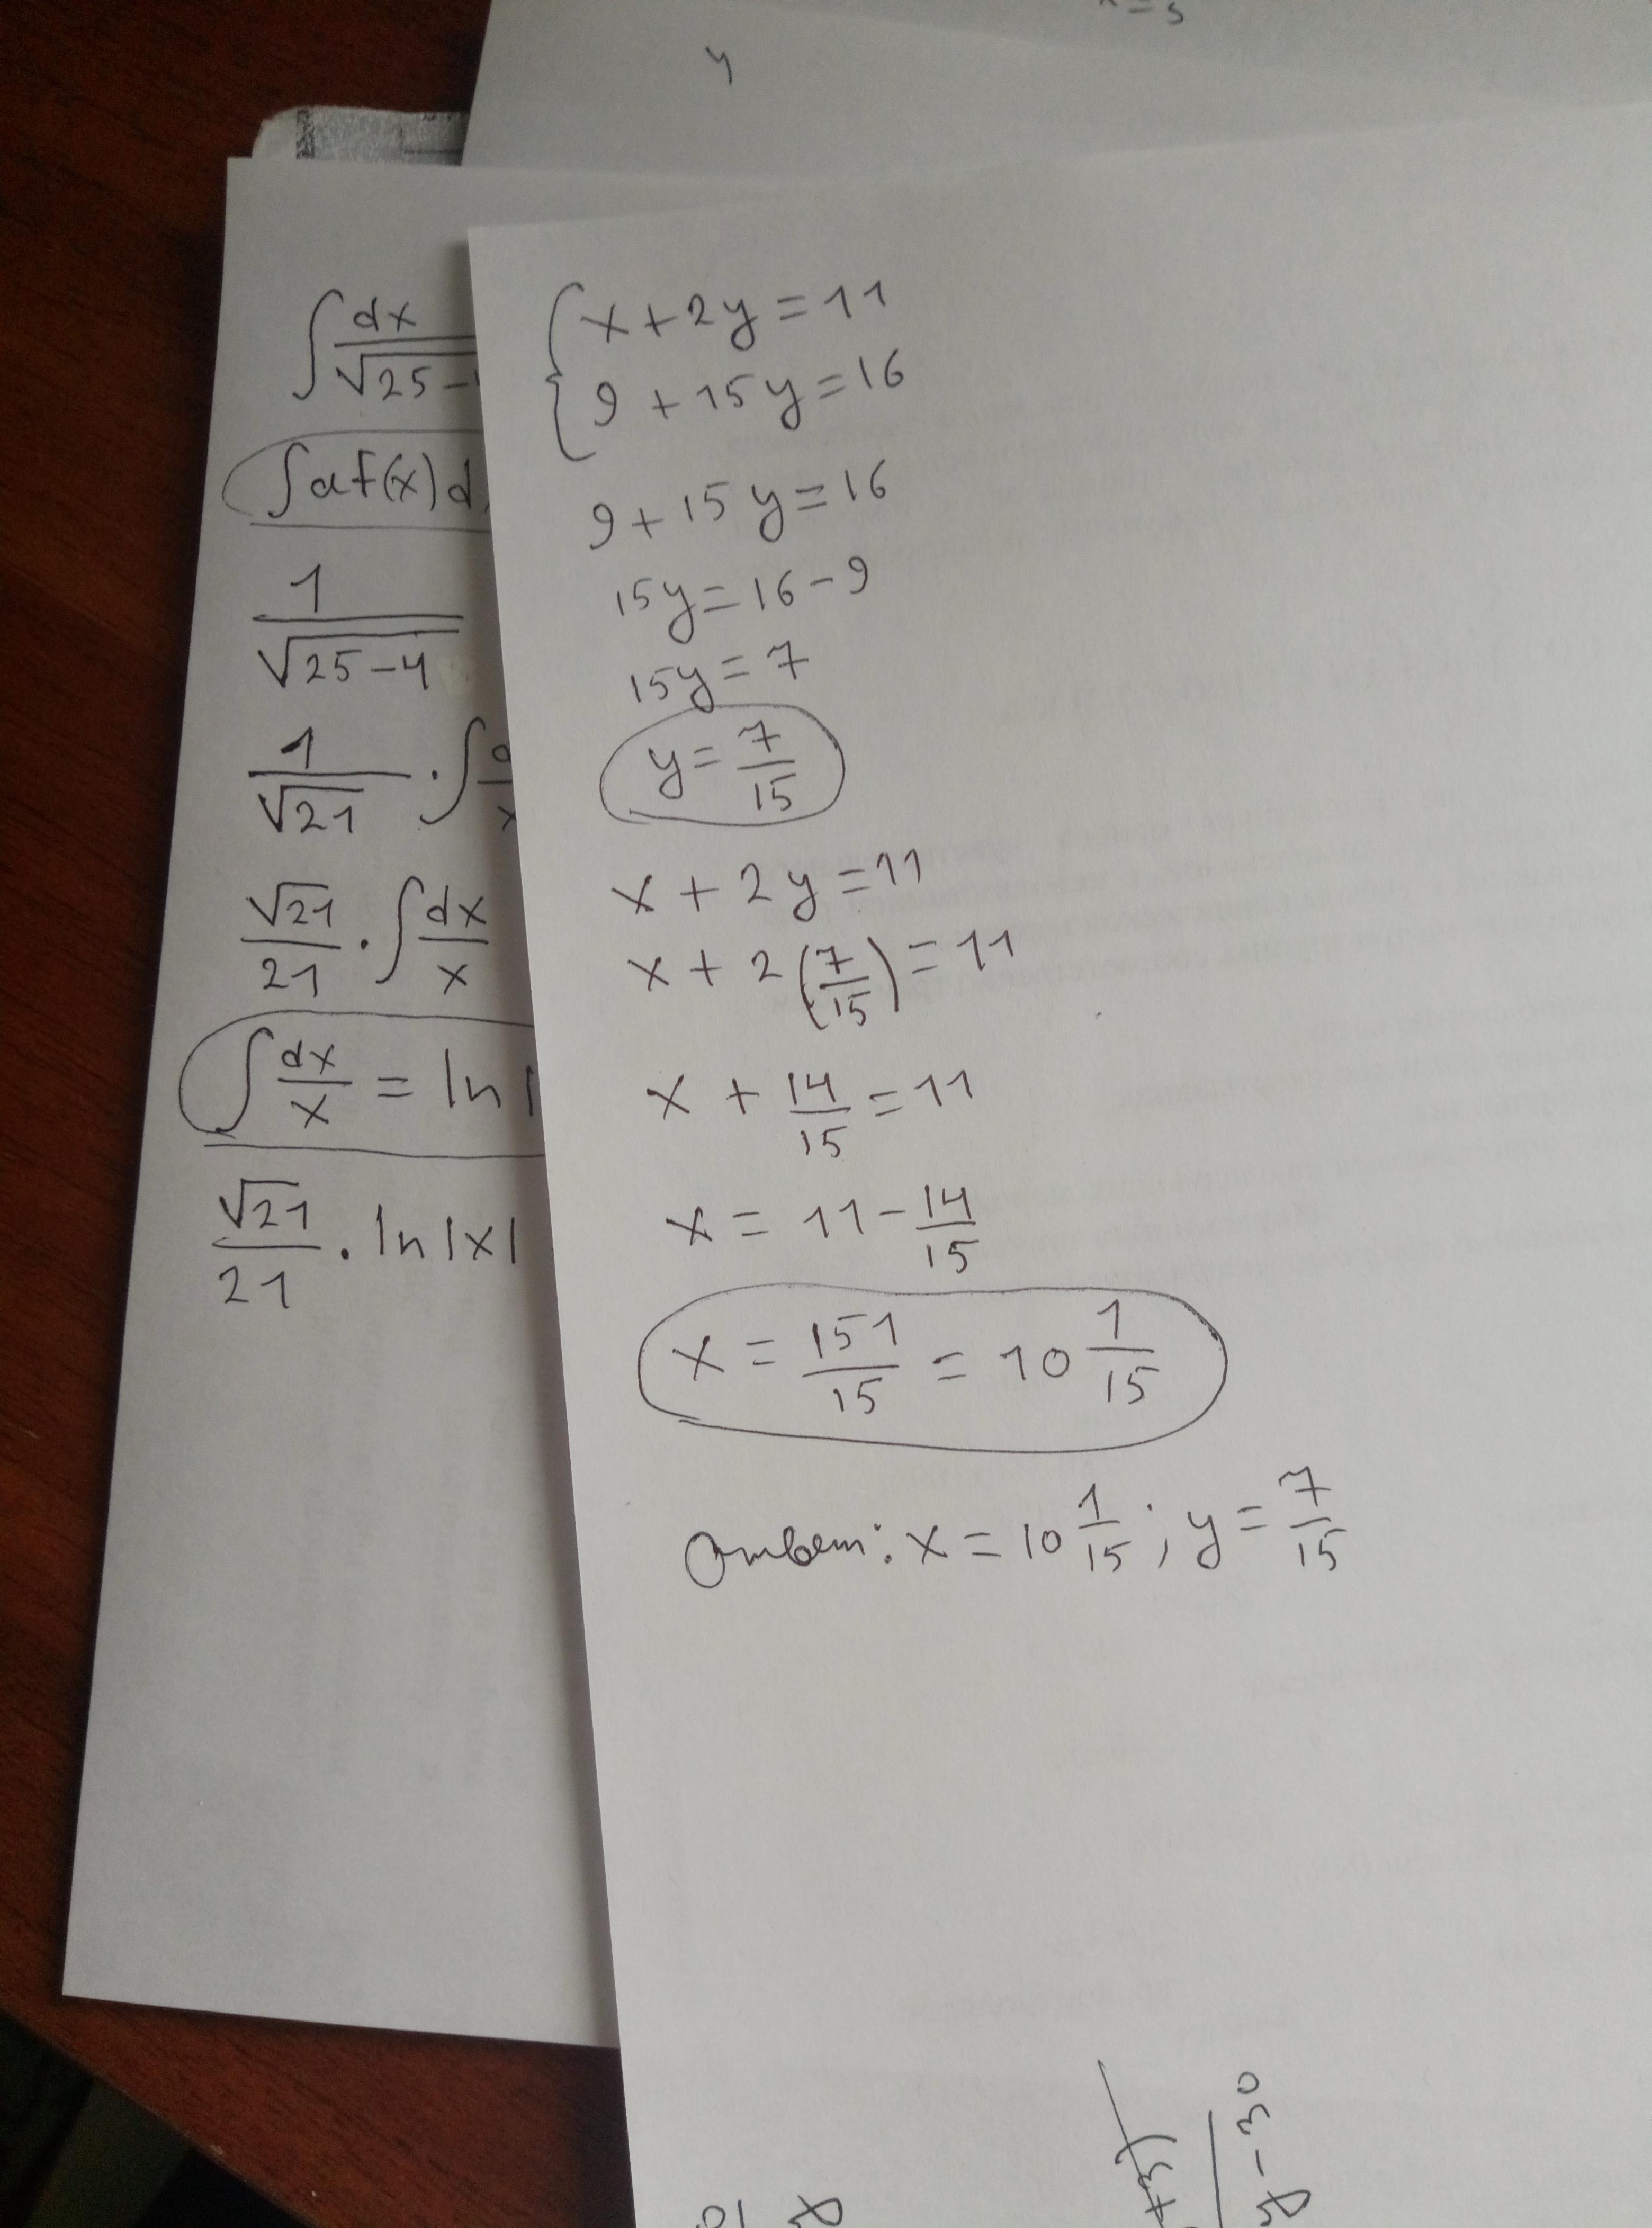 x = 5
y
∫ dx/√25-
∫af(x)d
1/√25-4
1/√21 · ∫
√21/21 · ∫ dx/x
∫ dx/x = ln |
√21/21 · ln |x|
{ x + 2y = 11
9 + 15y = 16
9 + 15y = 16
15y = 16 - 9
15y = 7
y = 7/15
x + 2y = 11
x + 2(7/15) = 11
x + 14/15 = 11
x = 11 - 14/15
x = 151/15 = 10 1/15
Ответ: x = 10 1/15; y = 7/15
+3)
y - 30